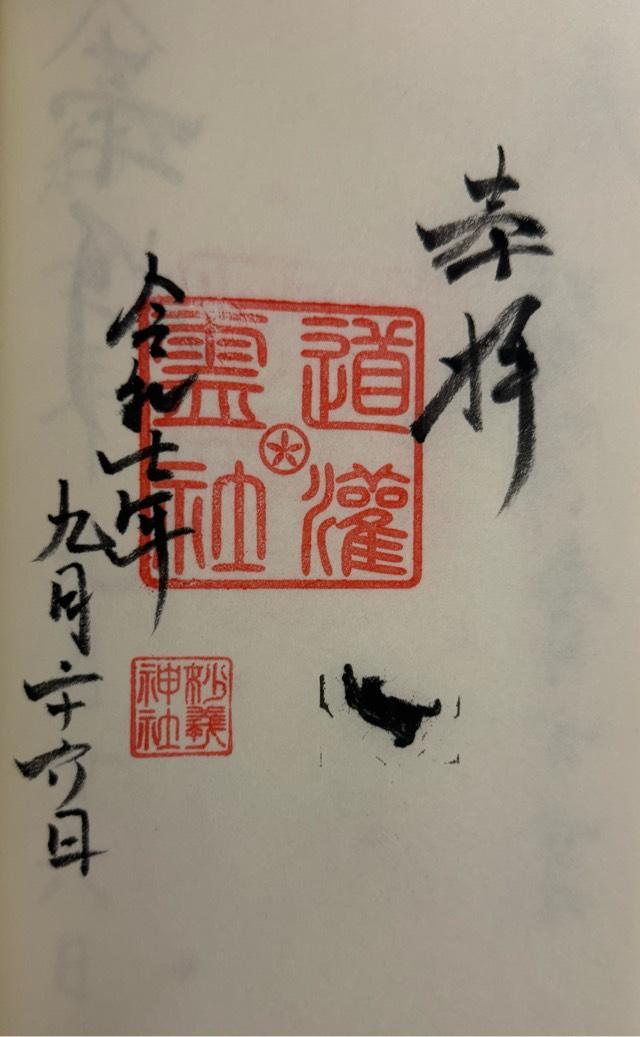 奉拝
道灌
霊社
令和七年
九月二十六日
妙義
神社